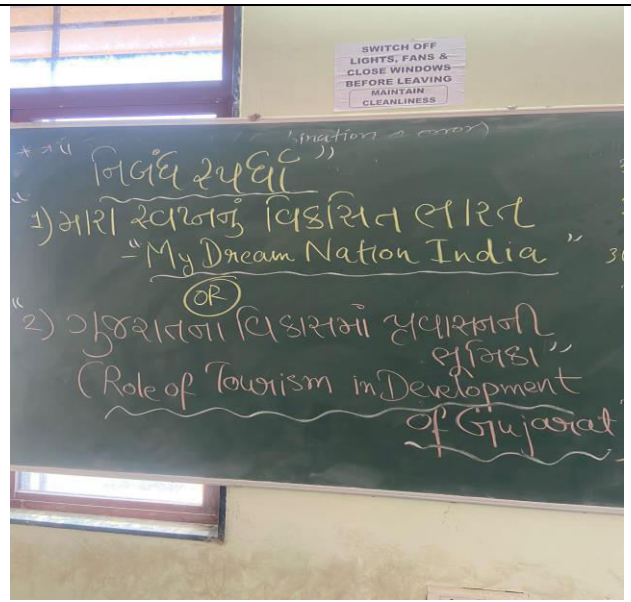 SWITCH OFF
LIGHTS, FANS &
CLOSE WINDOWS
BEFORE LEAVING
MAINTAIN
CLEANLINESS
નિબંધ સ્પર્ધા"
"1) મારા સ્વપ્નનું વિકસિત ભારત
- "My Dream Nation India"
OR
"2) ગુજરાતના વિકાસમાં પ્રવાસનની
ભૂમિકા"
(Role of Tourism in Development
of Gujarat